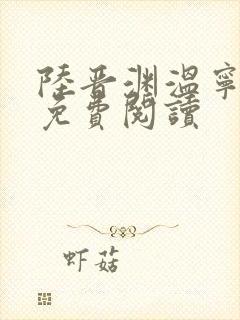 陸晋渊溫寧
免費閱讀
虾菇